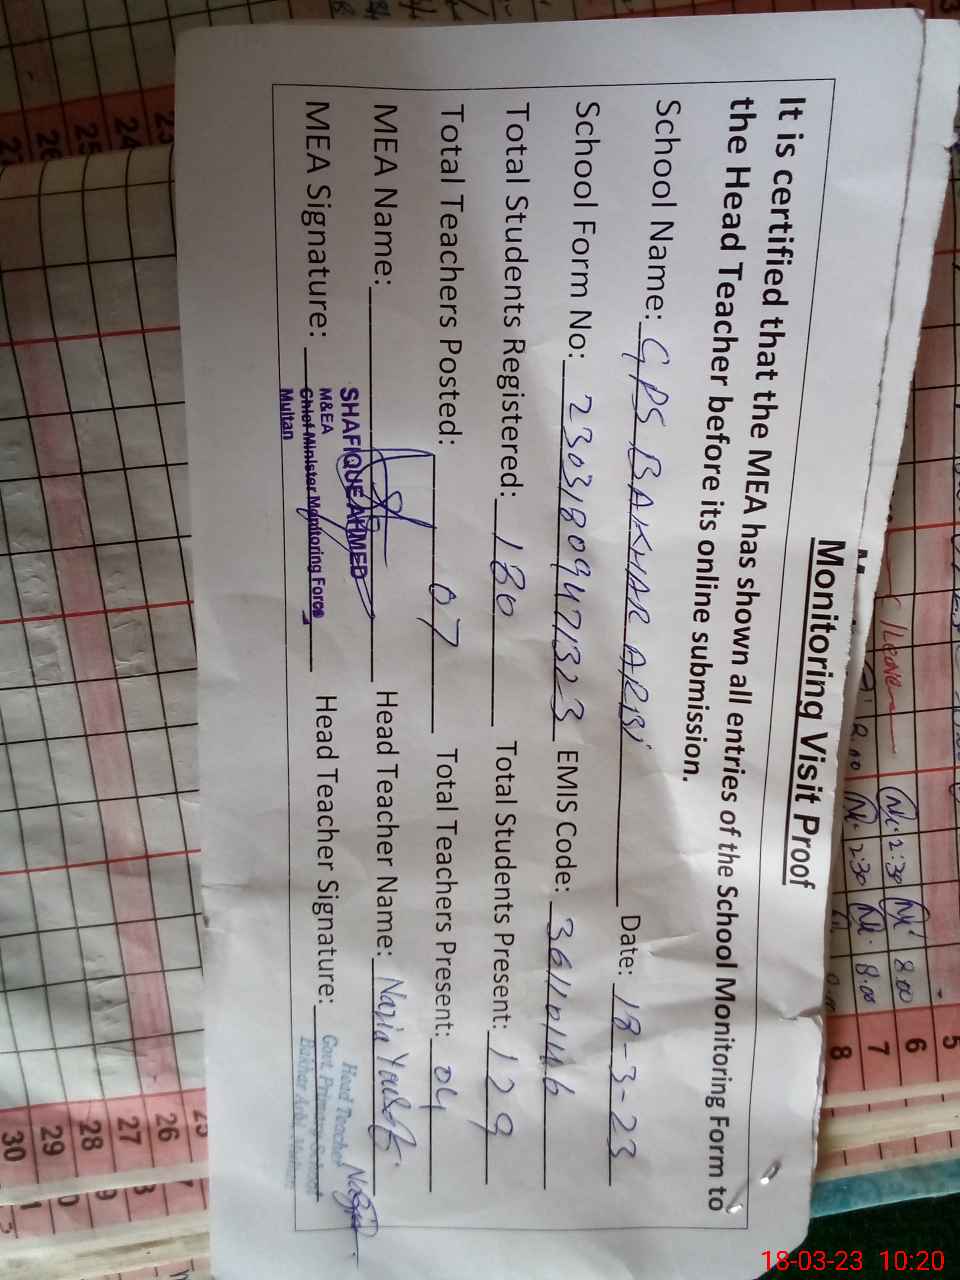 Monitoring Visit Proof
It is certified that the MEA has shown all entries of the School Monitoring Form to
the Head Teacher before its online submission.
School Name: GPS BAKHAR ARBI Date: 18-3-23
School Form No: 23031809471323 EMIS Code: 36110146
Total Students Registered: 180 Total Students Present: 129
Total Teachers Posted: 07 Total Teachers Present: 04
MEA Name: Head Teacher Name: Nazia Yousaf
SHAFIQUE AHMED
M&EA
Chief Minister Monitoring Force
Multan
MEA Signature: Head Teacher Signature:
Head Teacher
Govt. Primary School
Bakhar Arbi Multan
Leave
2:30 8.00
2:30 8.00
5
6
7
8
23
24
25
26
25
26
27
28
29
30
18-03-23 10:20